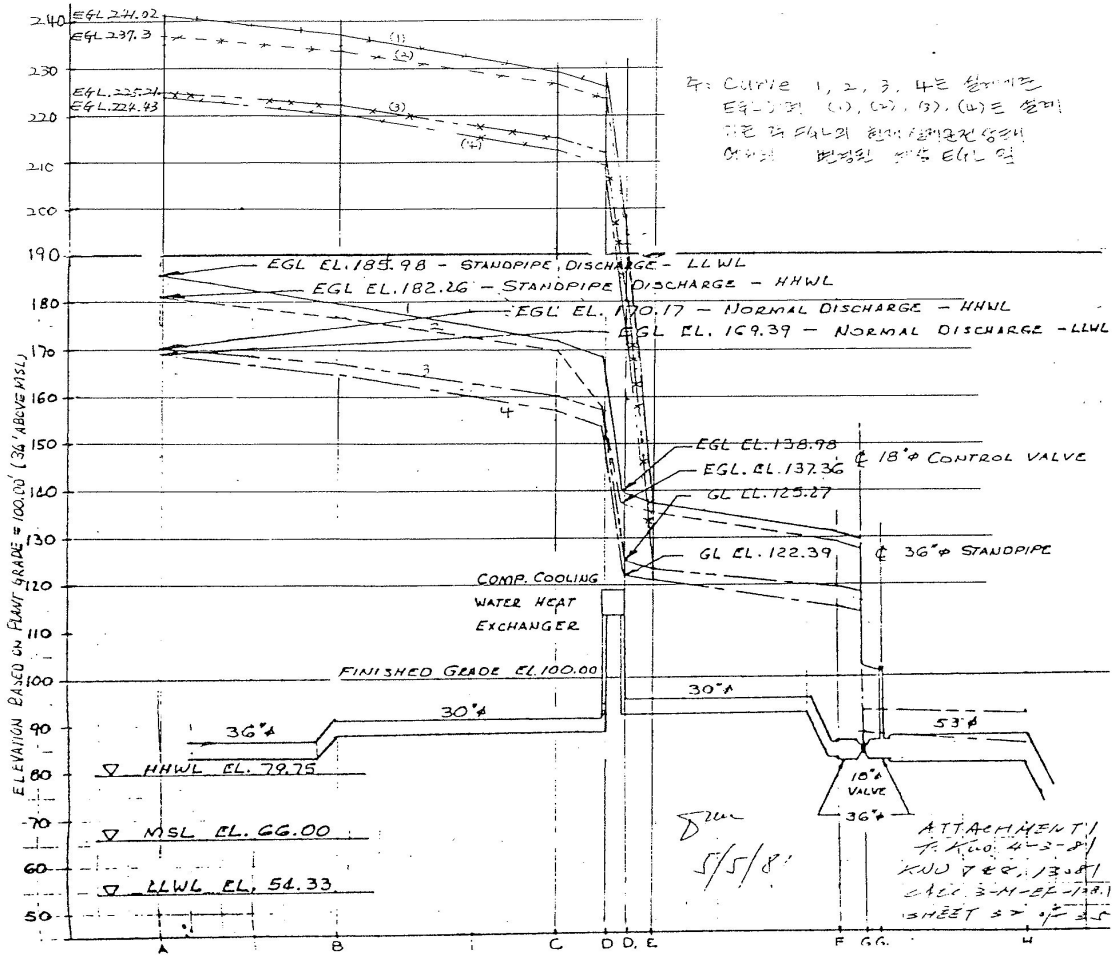 240
230
220
210
200
190
180
170
160
150
140
130
120
110
100
90
80
70
60
50
ELEVATION BASED ON PLANT GRADE = 100.00' (34' ABOVE MSL)
EGL 241.02
EGL 237.3
EGL 225.21
EGL 224.43
(1)
(2)
(3)
(4)
주: Curve 1, 2, 3, 4는
(1), (2), (3), (4)는 설계
EGL EL. 185.98 - STANDPIPE DISCHARGE - LLWL
EGL EL. 182.26 - STANDPIPE DISCHARGE - HHWL
EGL EL. 170.17 - NORMAL DISCHARGE - HHWL
EGL EL. 169.39 - NORMAL DISCHARGE - LLWL
1
2
3
4
EGL EL. 138.98
EGL. EL. 137.36
GL EL. 125.27
GL EL. 122.39
℄ 18"φ CONTROL VALVE
℄ 36"φ STANDPIPE
COMP. COOLING
WATER HEAT
EXCHANGER
FINISHED GRADE EL. 100.00
36"φ
30"φ
30"φ
53"φ
18"φ
VALVE
36"φ
HHWL EL. 79.75
MSL EL. 66.00
LLWL EL. 54.33
5/5/81
ATTACHMENT 1
4-3-81
SHEET
A B C D D, E F G G. H